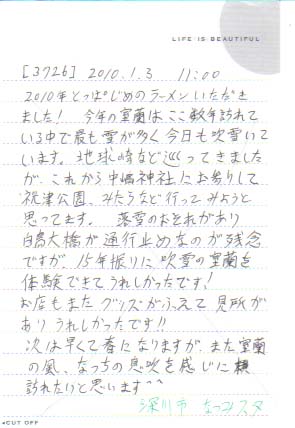 LIFE IS BEAUTIFUL
[3726] 2010.1.3 11:00
2010年とっぱじめのラーメンいただき
ました! 今年の室蘭はここ数年訪れて
いる中で最も雪が多く今日も吹雪いて
います。地球岬など巡ってきました
が、これから中嶋神社にお参りして
祝津公園、みたらなど行ってみようと
思ってます。 落雪のおそれがあり
白鳥大橋が通行止めなのが残念
ですが、15年振りに吹雪の室蘭を
体験できてうれしかったです!
お店もまたグッズがふえて見所が
ありうれしかったです!!
次は早くて春になりますが、また室蘭
の風、なっちの息吹を感じに
訪れたいと思います^^
深川市 なつみスタ
◄CUT OFF